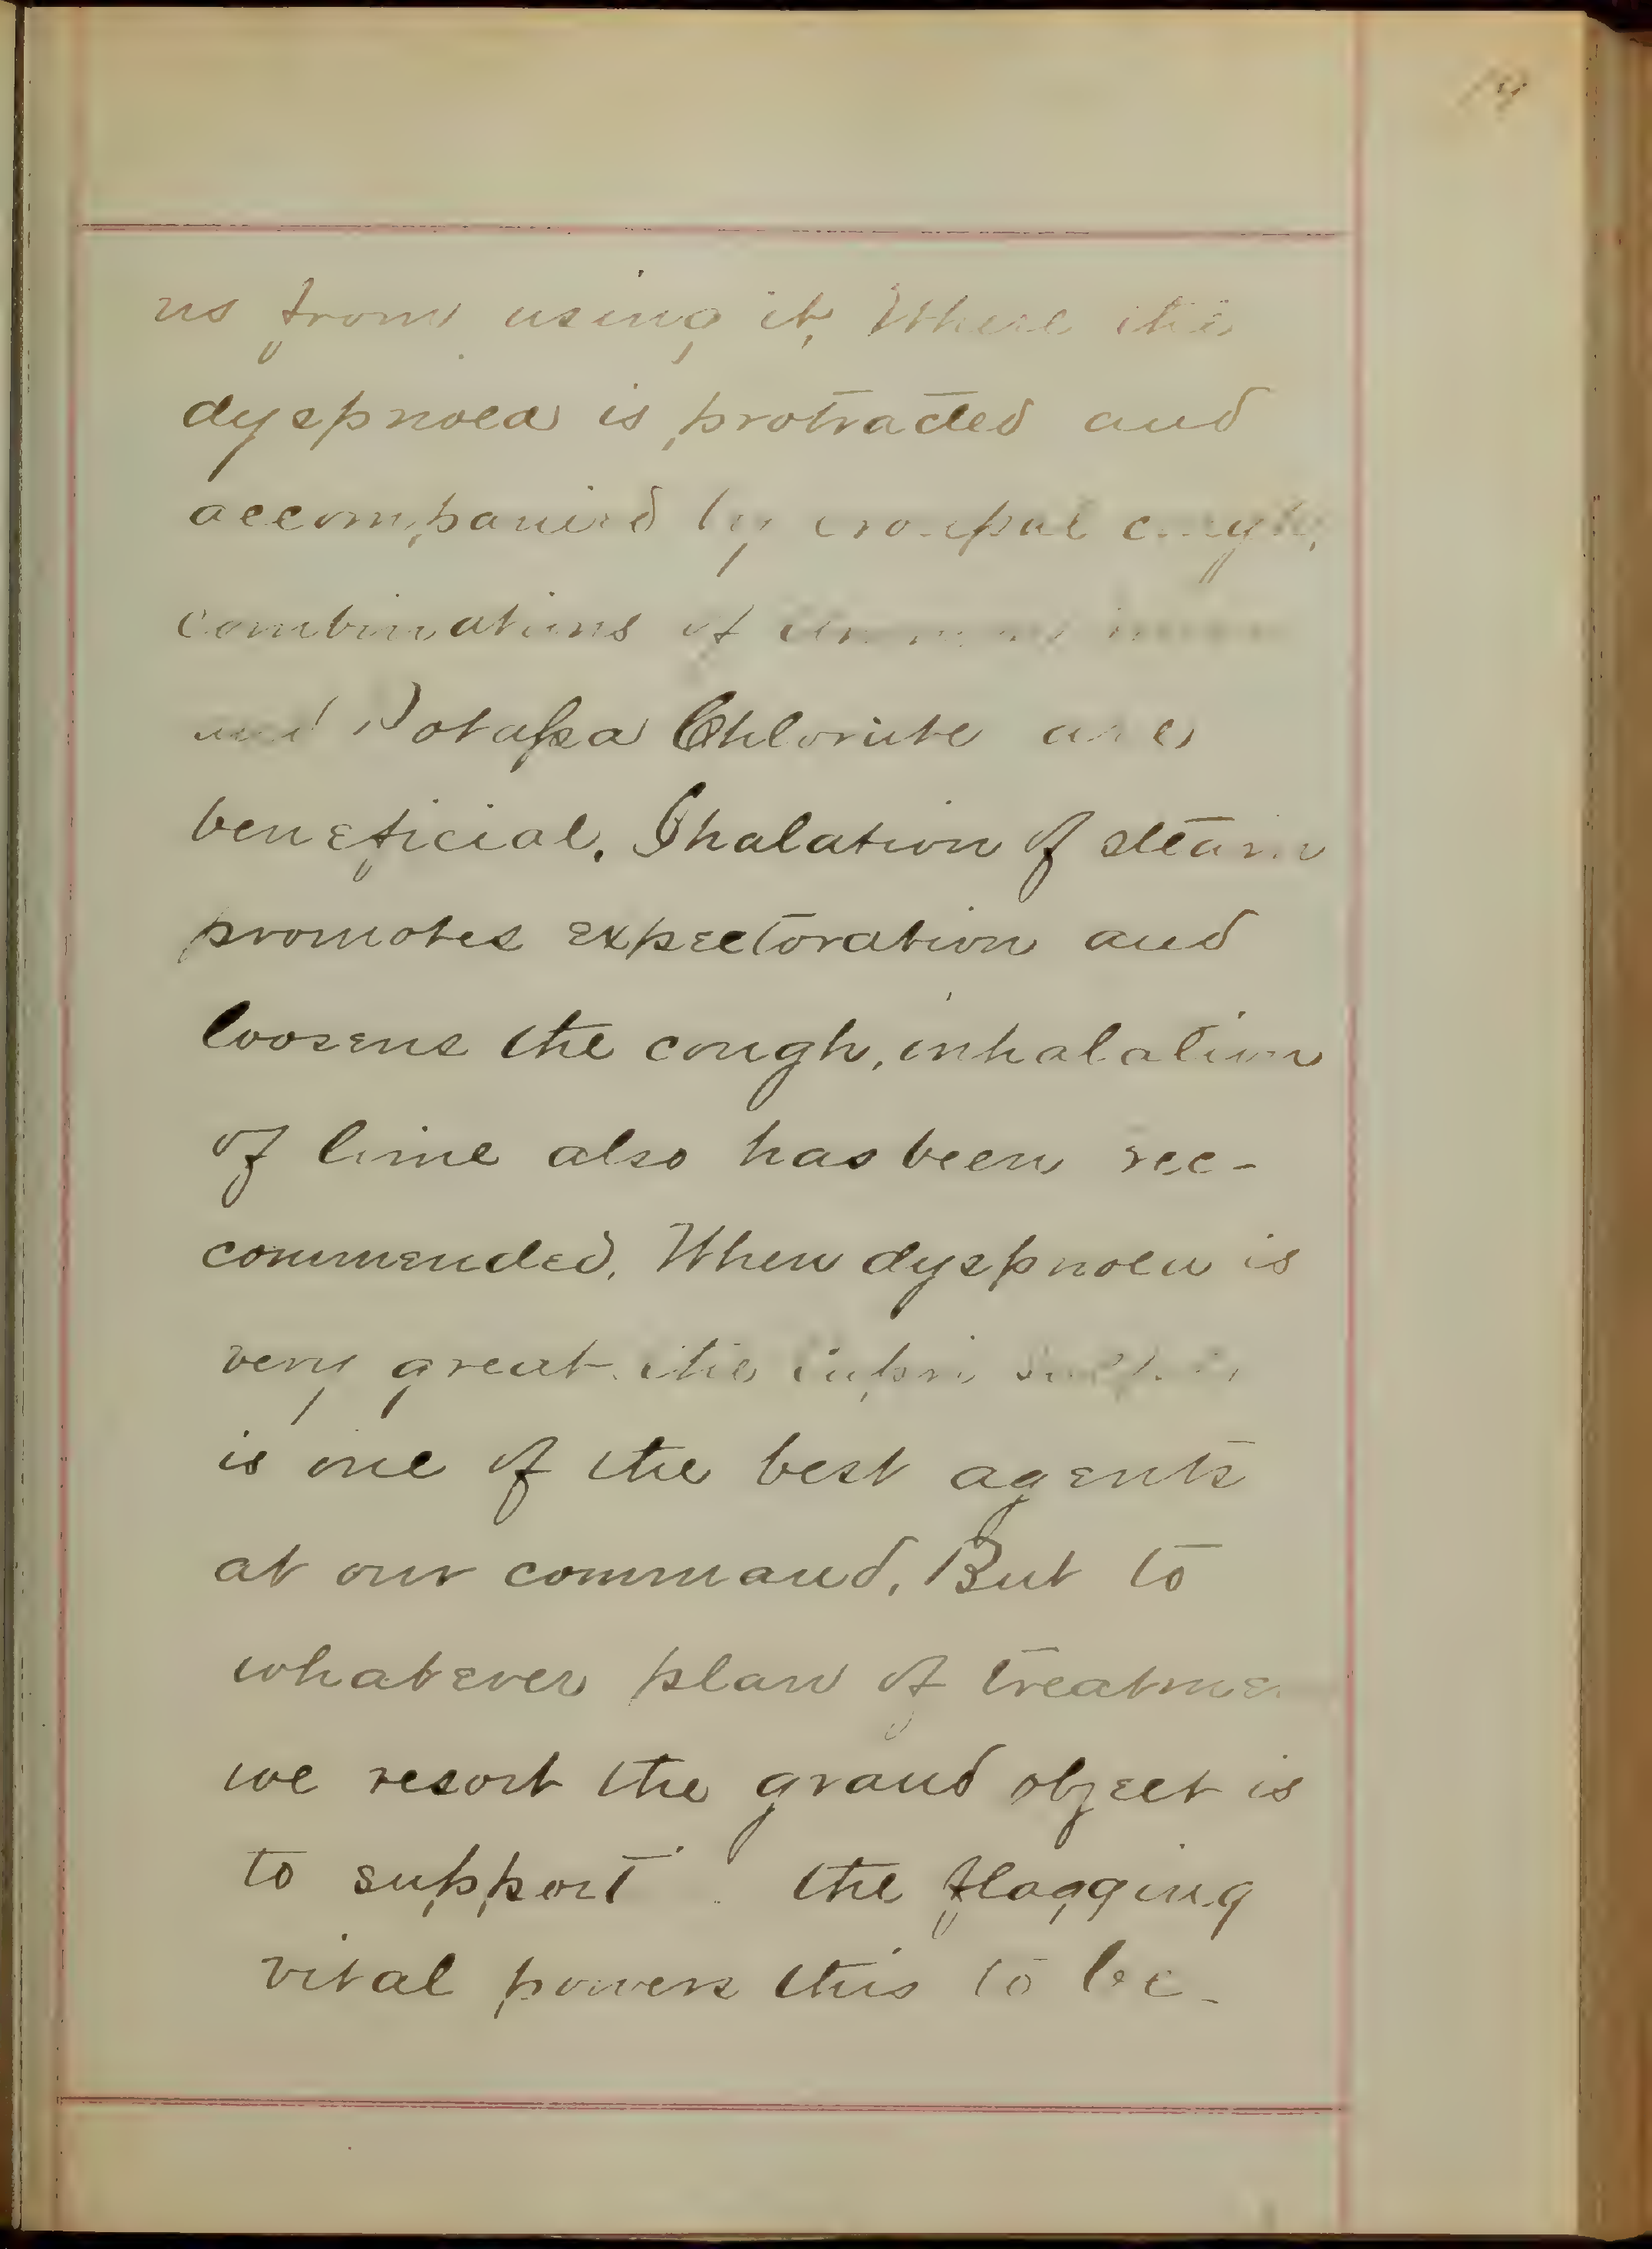 19
us from using it, Where the
dyspnoea is protracted and
accompanied by croupal cough,
combinations of
and Potassa Chlorate are
beneficial. Ihalation of steam
promotes expectoration and
loosens the cough, inhalation
of lime also has been rec-
commended. When dyspnoea is
very great the cupri
is one of the best agents
at our command. But to
whatever plan of treatme
we resort the grand object is
to support the flagging
vital powers this to be-